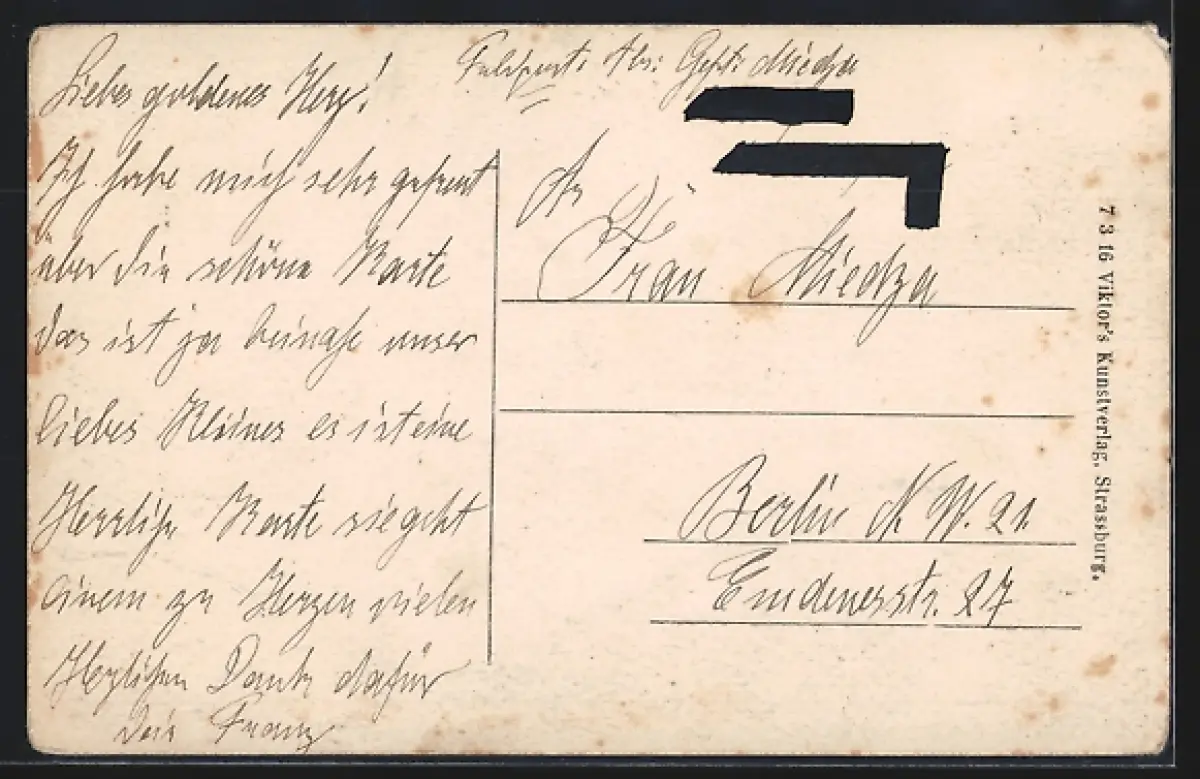 Liebes goldenes Herz!
Ich habe mich sehr gefreut
über die schöne Karte
das ist ja beinahe unser
liebes Kleines es ist eine
Herrliche Karte sie geht
einem zu Herzen vielen
Herzlichen Dank dafür
Dein Franz
Feldpost. Abs: Gefr. Miedza
An
Frau Miedza
Berlin N.W. 21.
Emdenerstr. 27
7 3 16 Viktor's Kunstverlag, Strassburg.